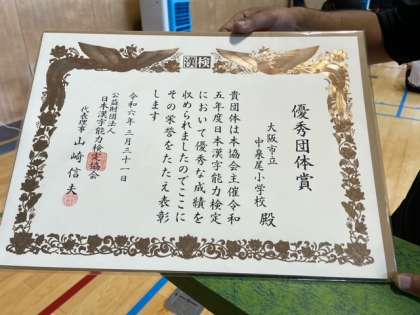 漢検
優秀団体賞
大阪市立
中泉尾小学校 殿
貴団体は本協会主催令和
五年度日本漢字能力検定
において優秀な成績を
収められましたのでここに
その栄誉をたたえ表彰
します
令和六年三月三十一日
公益財団法人
日本漢字能力検定協会
代表理事 山崎信夫